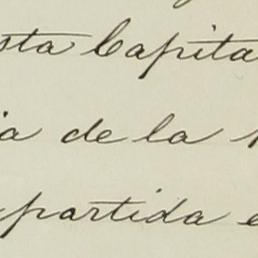 sta Capita
ia de la
partida e